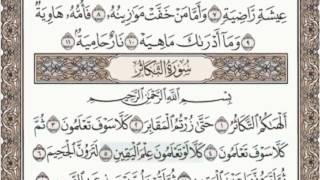 عِيشَةٍ رَّاضِيَةٍ ٧ وَأَمَّا مَنْ خَفَّتْ مَوَٰزِينُهُۥ ٨ فَأُمُّهُۥ هَاوِيَةٌ
٩ وَمَآ أَدْرَىٰكَ مَا هِيَهْ ١٠ نَارٌ حَامِيَةٌۢ ١١
سُورَةُ التَّكَاثُرِ
بِسْمِ ٱللَّهِ ٱلرَّحْمَٰنِ ٱلرَّحِيمِ
أَلْهَىٰكُمُ ٱلتَّكَاثُرُ ١ حَتَّىٰ زُرْتُمُ ٱلْمَقَابِرَ ٢ كَلَّا سَوْفَ تَعْلَمُونَ ٣ ثُمَّ
كَلَّا سَوْفَ تَعْلَمُونَ ٤ كَلَّا لَوْ تَعْلَمُونَ عِلْمَ ٱلْيَقِينِ ٥ لَتَرَوُنَّ ٱلْجَحِيمَ ٦